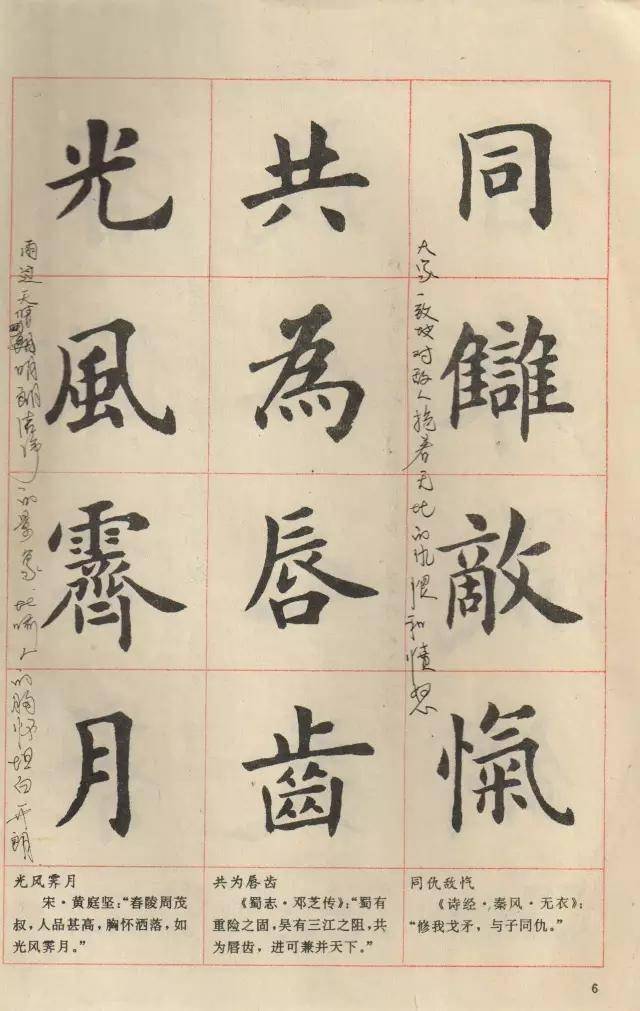 同讎敵愾
大家一致地对敌人抱着无比的仇恨和愤怒
共為唇齒
光風霽月
雨过天晴明朗洁净的景象.比喻人的胸怀坦白开朗
光风霁月
宋·黄庭坚：“春陵周茂
叔，人品甚高，胸怀洒落，如
光风霁月。”
共为唇齿
《蜀志·邓芝传》：“蜀有
重险之固，吴有三江之阻，共
为唇齿，进可兼并天下。”
同仇敌忾
《诗经·秦风·无衣》：
“修我戈矛，与子同仇。”
6